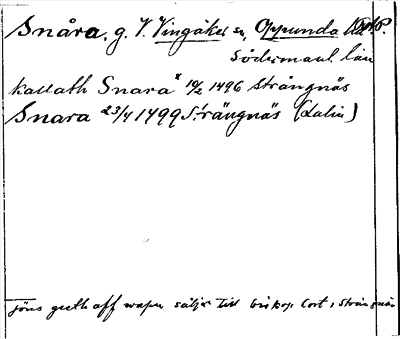 Snåra, g. V. Vingåker sn, Oppunda
Södermanl. län
kallath Snaraˣ 10/2 1496 Strängnäs
Snara 23/4 1499 Strängnäs (latin)
jöns geeth aff wapn säljer till biskop Cort, Strängnäs